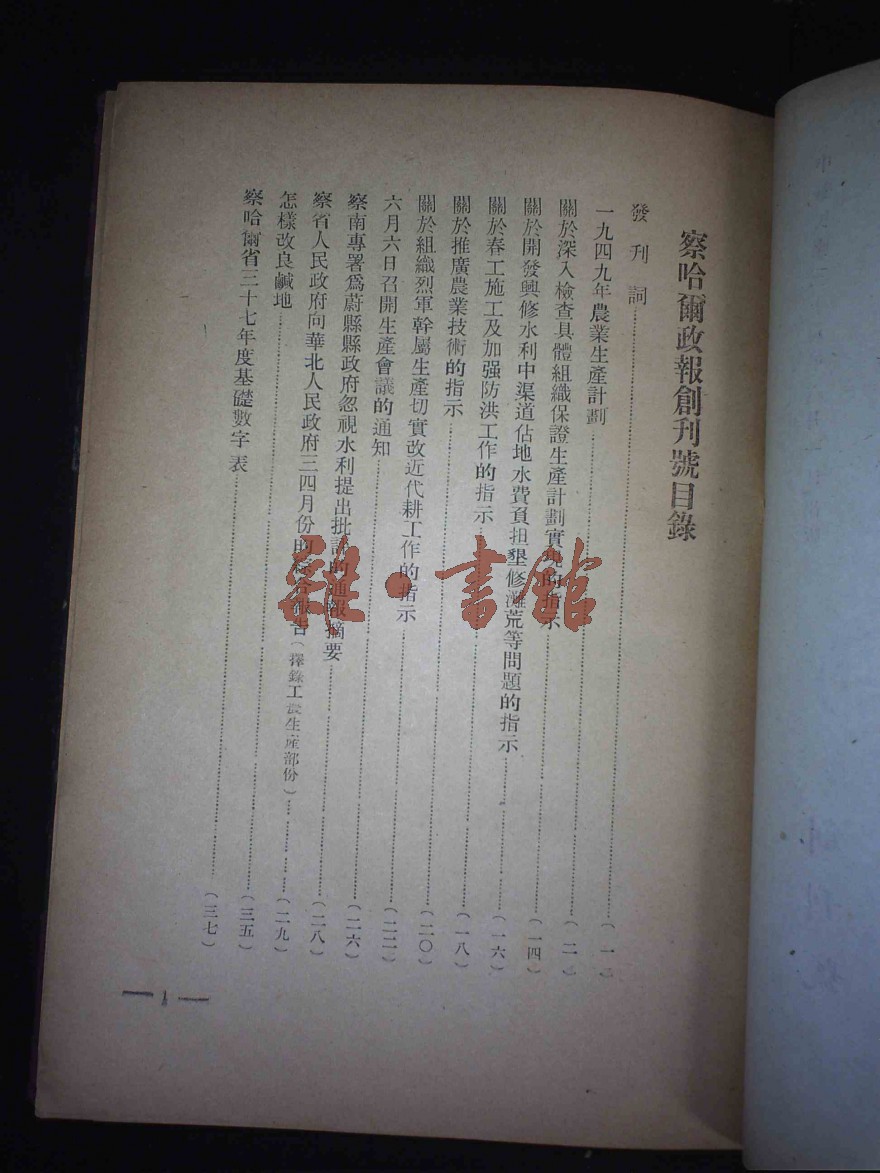 察哈爾政報創刊號目錄
發刊詞……(一)
一九四九年農業生產計劃……(二)
關於深入檢查具體組織保證生產計劃實現的指示……(一四)
關於開發興修水利中渠道佔地水費負担墾修灘荒等問題的指示……(一六)
關於春工施工及加强防洪工作的指示……(一八)
關於推廣農業技術的指示……(二〇)
關於組織烈軍幹屬生產切實改近代耕工作的指示……(二二)
六月六日召開生產會議的通知……(二六)
察南專署爲蔚縣縣政府忽視水利提出批評的通報摘要……(二八)
察省人民政府向華北人民政府三四月份的綜合報告(擇錄工農生產部份)……(二九)
怎樣改良鹹地……(三五)
察哈爾省三十七年度基礎數字表……(三七)
— 1 —
雜·書館